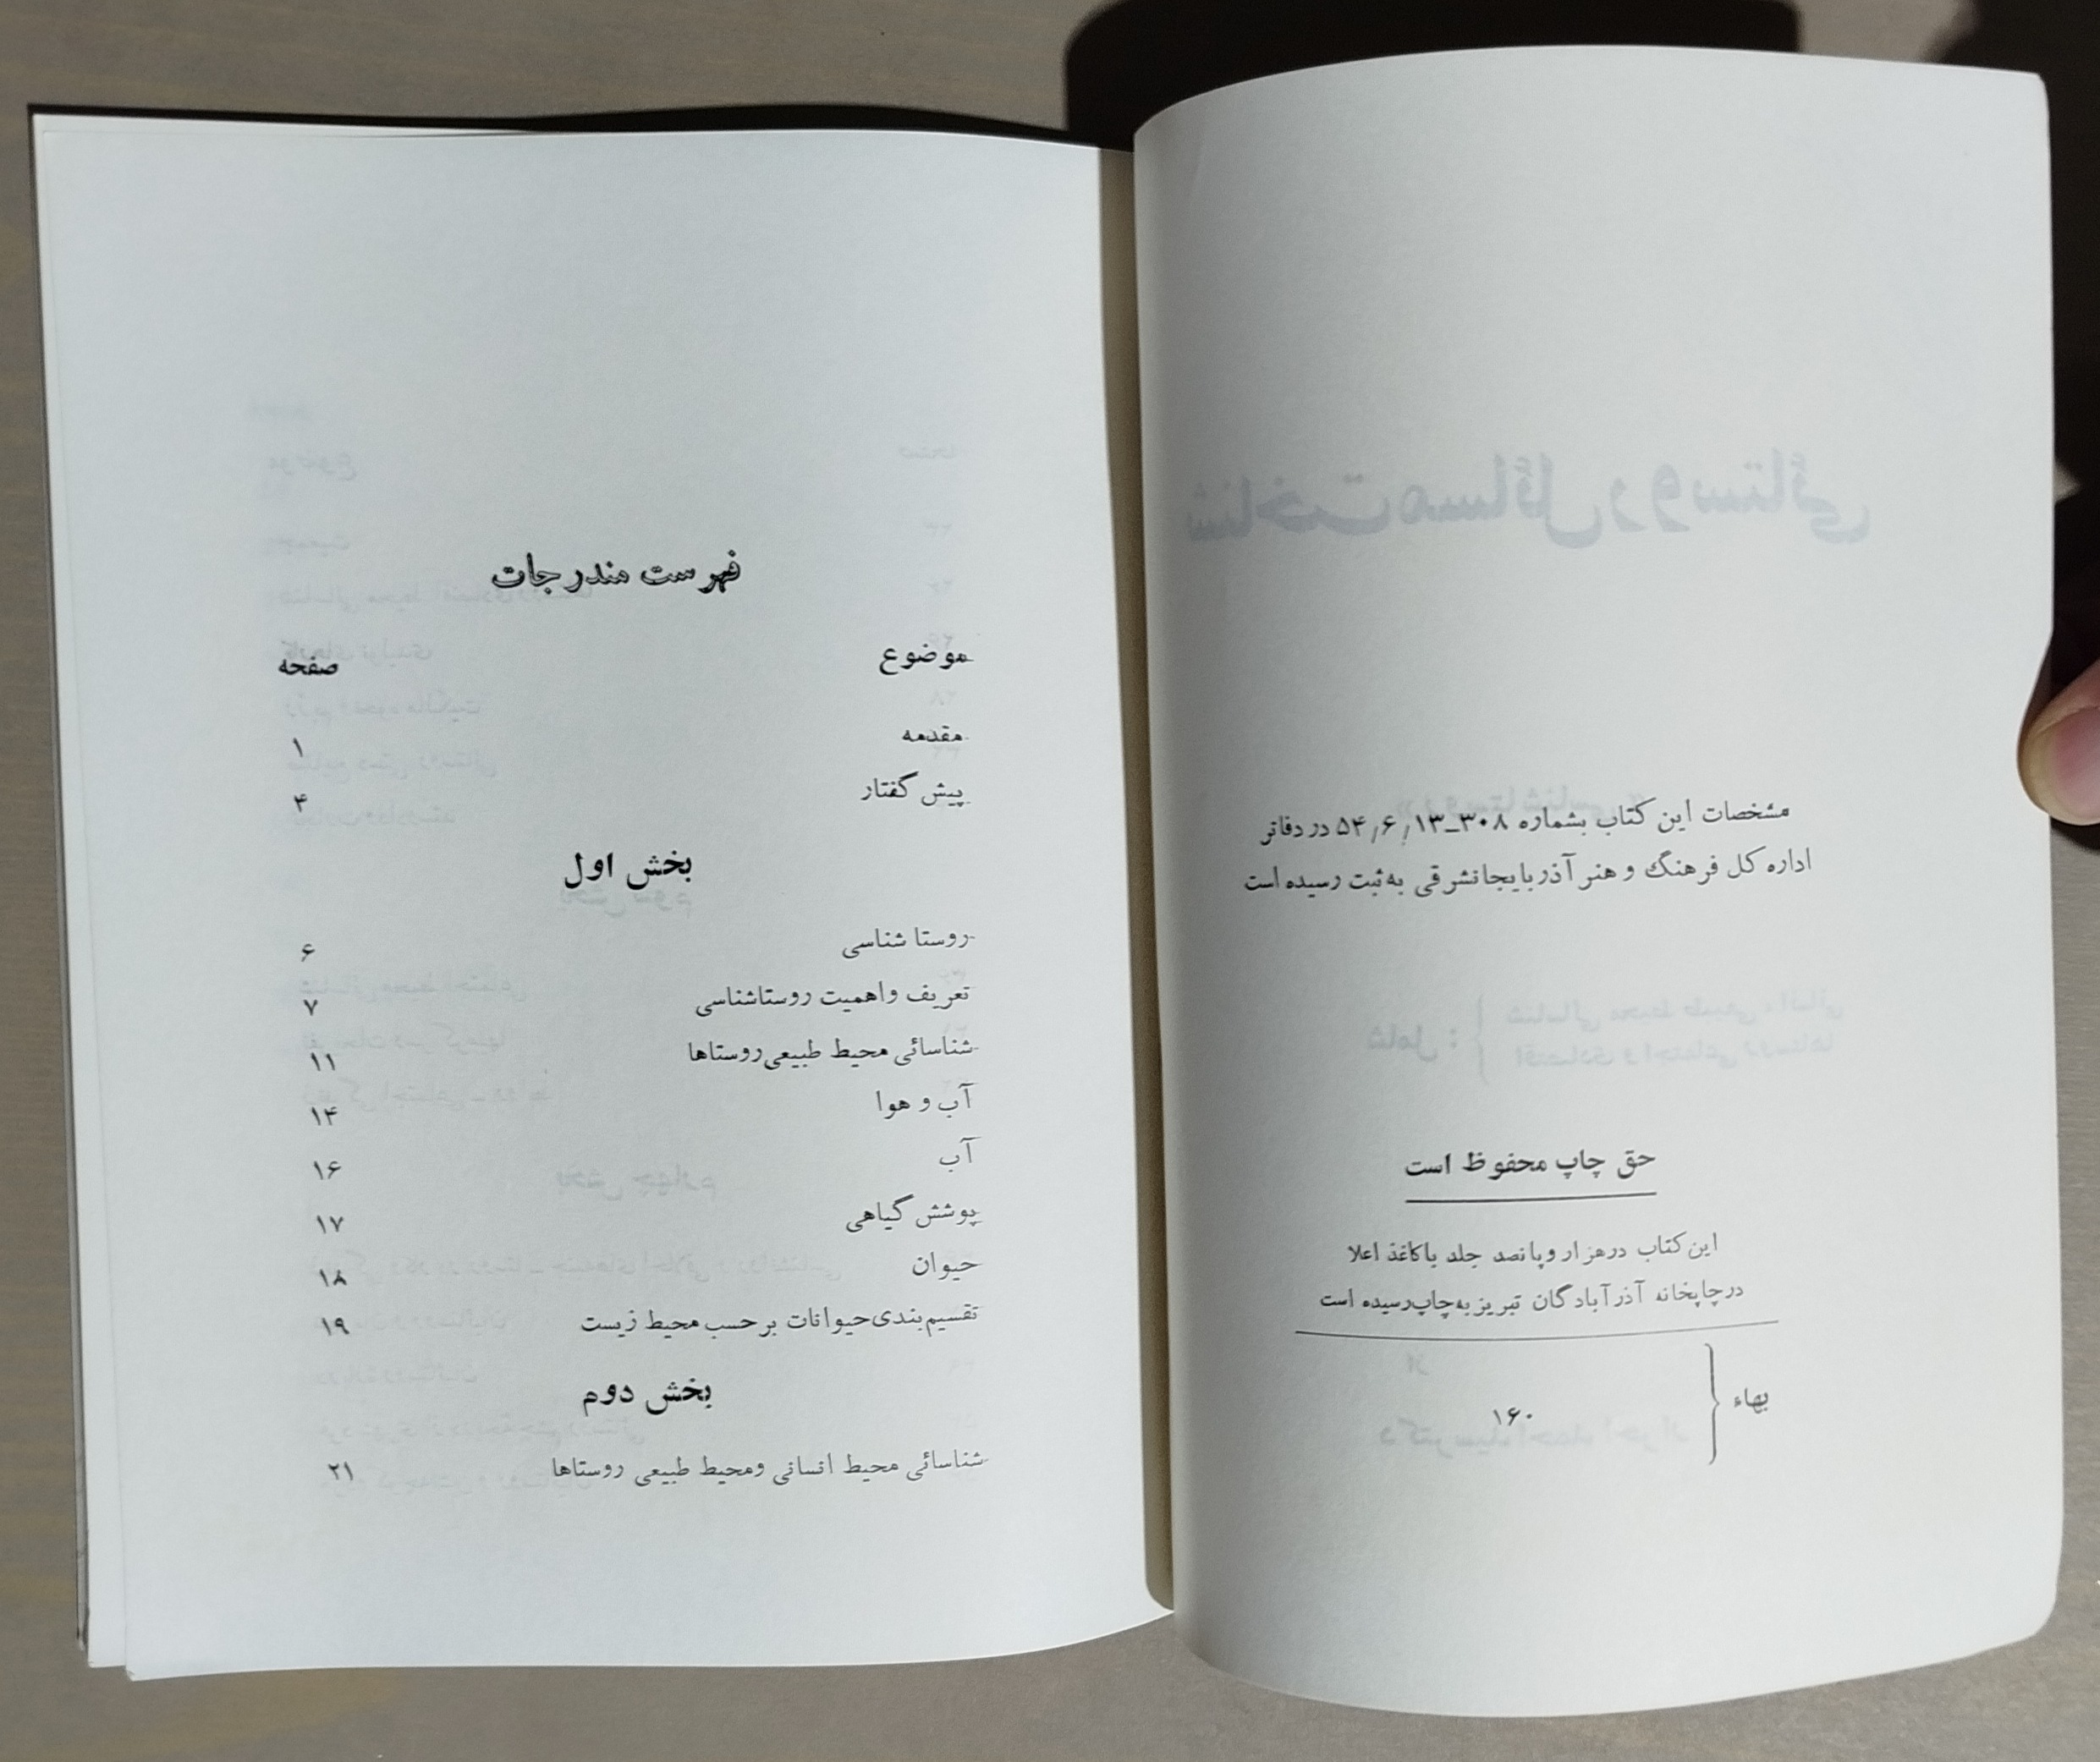 مشخصات این کتاب بشماره ۳۰۸_۵۴٫۶٫۱۳ در دفاتر
اداره کل فرهنگ و هنر آذربایجانشرقی به ثبت رسیده است
حق چاپ محفوظ است
این کتاب درهزار و پانصد جلد با کاغذ اعلا
درچاپخانه آذرآبادگان تبریز به چاپ رسیده است
بهاء ۱۶۰
فهرست مندرجات
موضوع صفحه
مقدمه ۱
پیش گفتار ۴
بخش اول
روستا شناسی ۶
تعریف و اهمیت روستاشناسی ۷
شناسائی محیط طبیعی روستاها ۱۱
آب و هوا ۱۴
آب ۱۶
پوشش گیاهی ۱۷
حیوان ۱۸
تقسیم‌بندی حیوانات بر حسب محیط زیست ۱۹
بخش دوم
شناسائی محیط انسانی ومحیط طبیعی روستاها ۲۱